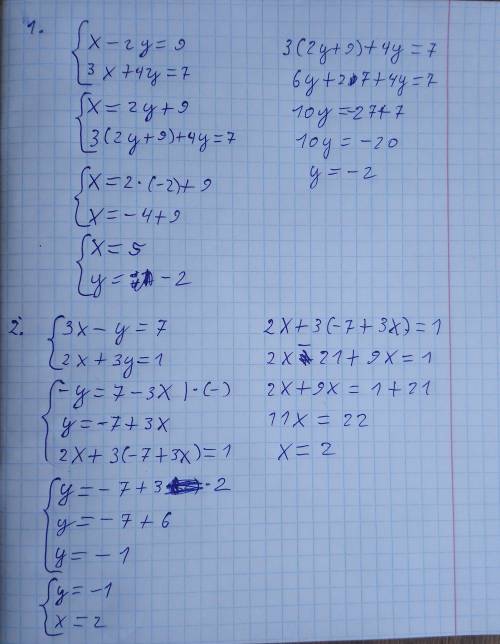 1.
x - 2y = 9
3x + 4y = 7
x = 2y + 9
3(2y + 9) + 4y = 7
x = 2 · (-2) + 9
x = -4 + 9
x = 5
y = -2
3(2y + 9) + 4y = 7
6y + 27 + 4y = 7
10y = -27 + 7
10y = -20
y = -2
2.
3x - y = 7
2x + 3y = 1
-y = 7 - 3x | · (-)
y = -7 + 3x
2x + 3(-7 + 3x) = 1
y = -7 + 3 · 2
y = -7 + 6
y = -1
y = -1
x = 2
2x + 3(-7 + 3x) = 1
2x - 21 + 9x = 1
2x + 9x = 1 + 21
11x = 22
x = 2